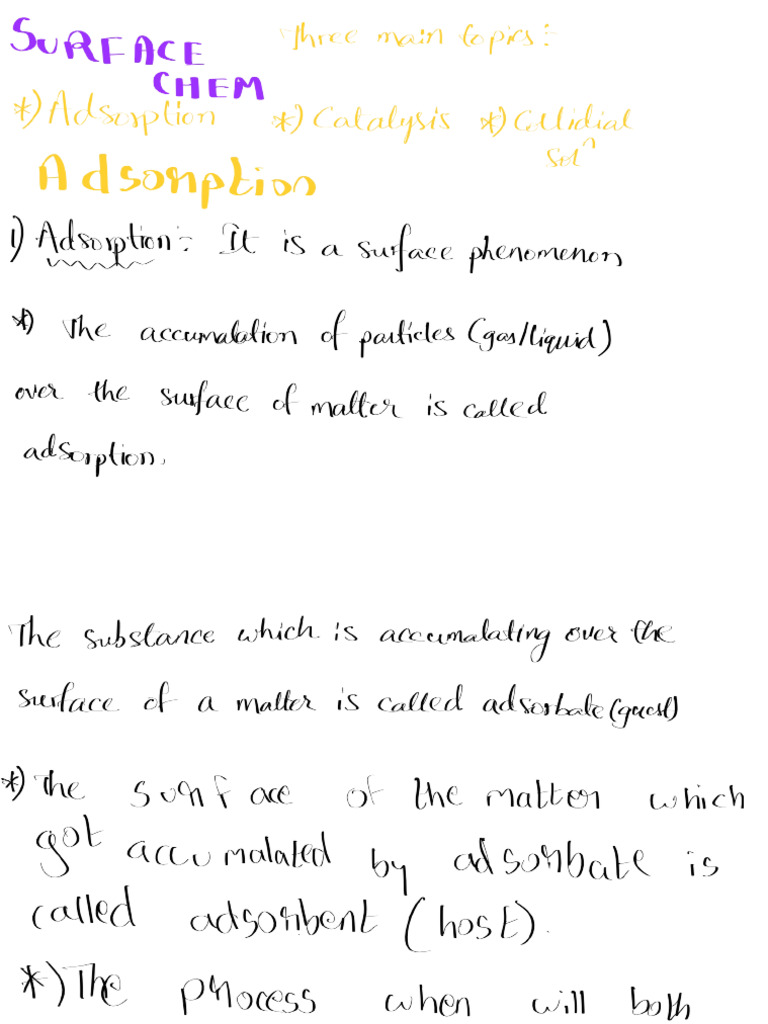 SURFACE
CHEM
Three main topics:-
*) Adsorption *) Catalysis *) Collidial
Solⁿ
Adsorption
1) Adsorption:- It is a surface phenomenon
*) The accumalation of particles (gas/liquid)
over the surface of matter is called
adsorption.
The substance which is accumalating over the
surface of a matter is called adsorbate (guest)
*) The surface of the matter which
got accumalated by adsorbate is
called adsorbent (host).
*) The process when will both